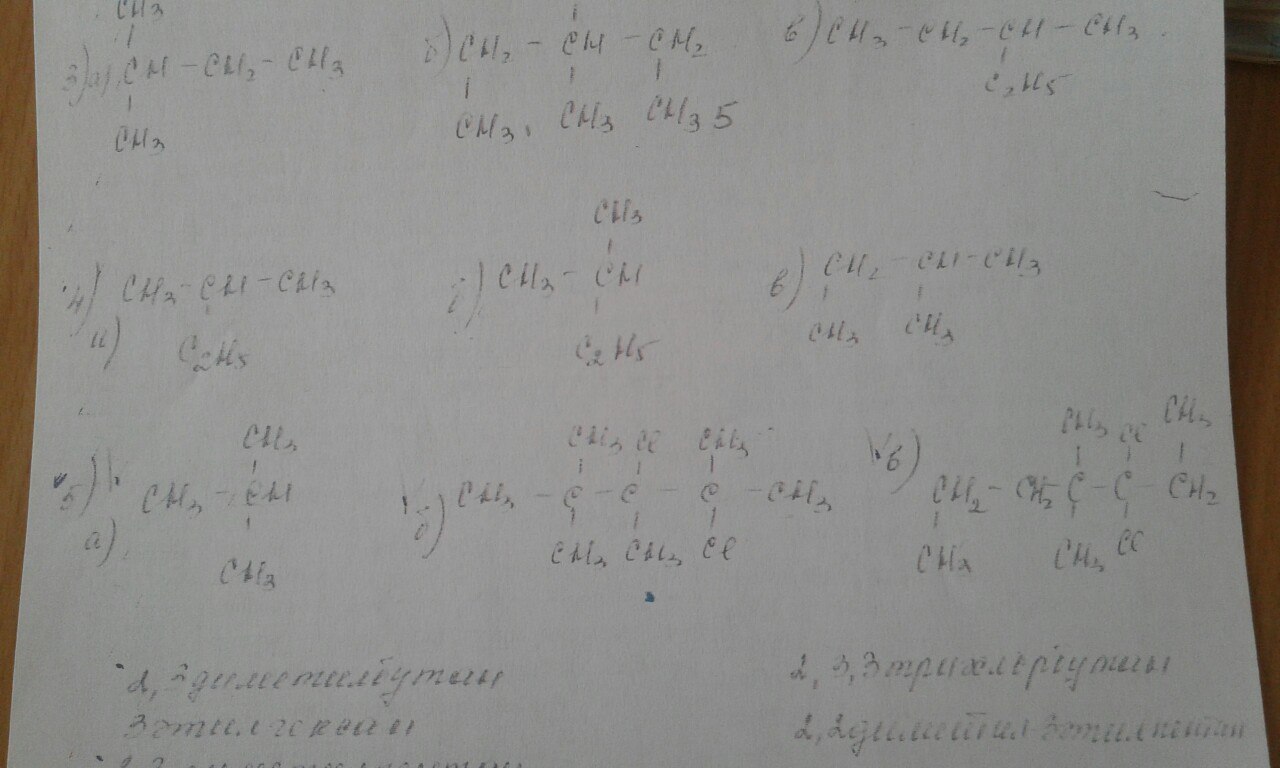 CH3
3) а) CH – CH2 – CH3
CH3
б) CH2 – CH – CH2
CH3, CH3 CH3 5
в) CH3 – CH2 – CH – CH3
C2H5
4) а) CH3 – CH – CH3
C2H5
CH3
CH3 – CH
C2H5
в) CH2 – CH – CH3
CH3 CH3
5) а) CH3
CH3 – CH
CH3
CH3 Cl CH3
б) CH3 – C – C – C – CH3
CH3 CH3 Cl
CH3 Cl CH3
в) CH2 – CH2 C – C – CH2
CH3 CH3 Cl
2,3 диметилбутан
3 этилгексан
2,3,3 трихлорбутан
2,2 диметил 3 этилпентан